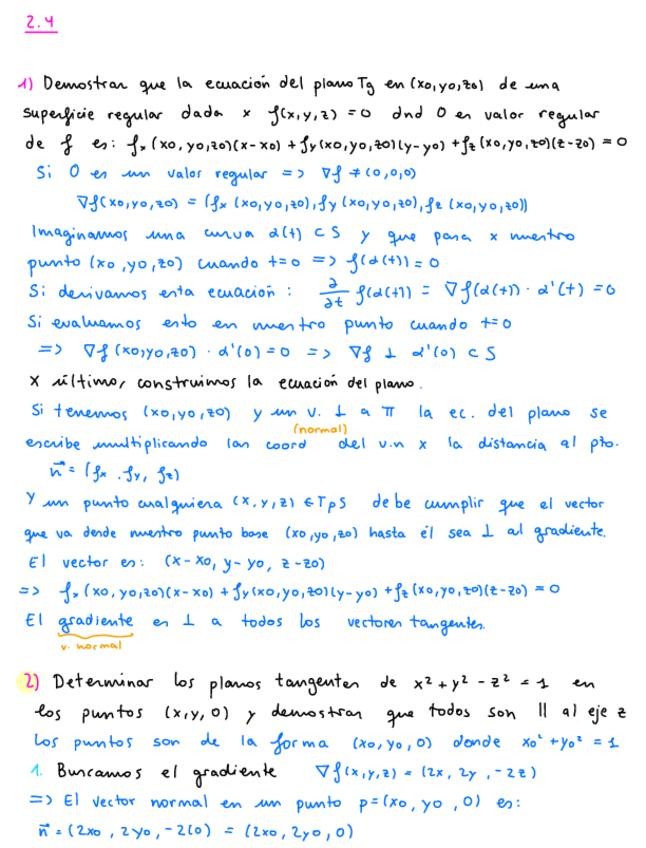 2.4
1) Demostrar que la ecuación del plano Tg en (x0, y0, z0) de una
superficie regular dada x f(x, y, z) = 0 dnd 0 es valor regular
de f es: fx (x0, y0, z0)(x-x0) + fy (x0, y0, z0)(y-y0) + fz (x0, y0, z0)(z-z0) = 0
Si 0 es un valor regular => ∇f ≠ (0,0,0)
∇f(x0, y0, z0) = (fx (x0, y0, z0), fy (x0, y0, z0), fz (x0, y0, z0))
Imaginamos una curva α(t) ⊂ S y que pasa x nuestro
punto (x0, y0, z0) cuando t=0 => f(α(t)) = 0
Si derivamos esta ecuación: ∂/∂t f(α(t)) = ∇f(α(t)) · α'(t) = 0
Si evaluamos esto en nuestro punto cuando t=0
=> ∇f (x0, y0, z0) · α'(0) = 0 => ∇f ⊥ α'(0) ⊂ S
x último, construimos la ecuación del plano.
Si tenemos (x0, y0, z0) y un v. ⊥ a π la ec. del plano se
(normal)
escribe multiplicando las coord del v.n x la distancia al pto.
n⃗ = (fx, fy, fz)
Y un punto cualquiera (x, y, z) ∈ TpS debe cumplir que el vector
que va desde nuestro punto base (x0, y0, z0) hasta él sea ⊥ al gradiente.
El vector es: (x-x0, y-y0, z-z0)
=> fx (x0, y0, z0)(x-x0) + fy (x0, y0, z0)(y-y0) + fz (x0, y0, z0)(z-z0) = 0
El gradiente es ⊥ a todos los vectores tangentes.
v. normal
2) Determinar los planos tangentes de x² + y² - z² = 1 en
los puntos (x, y, 0) y demostrar que todos son || al eje z
Los puntos son de la forma (x0, y0, 0) donde x0² + y0² = 1
1. Buscamos el gradiente ∇f(x, y, z) = (2x, 2y, -2z)
=> El vector normal en un punto p = (x0, y0, 0) es:
n⃗ = (2x0, 2y0, -2(0)) = (2x0, 2y0, 0)